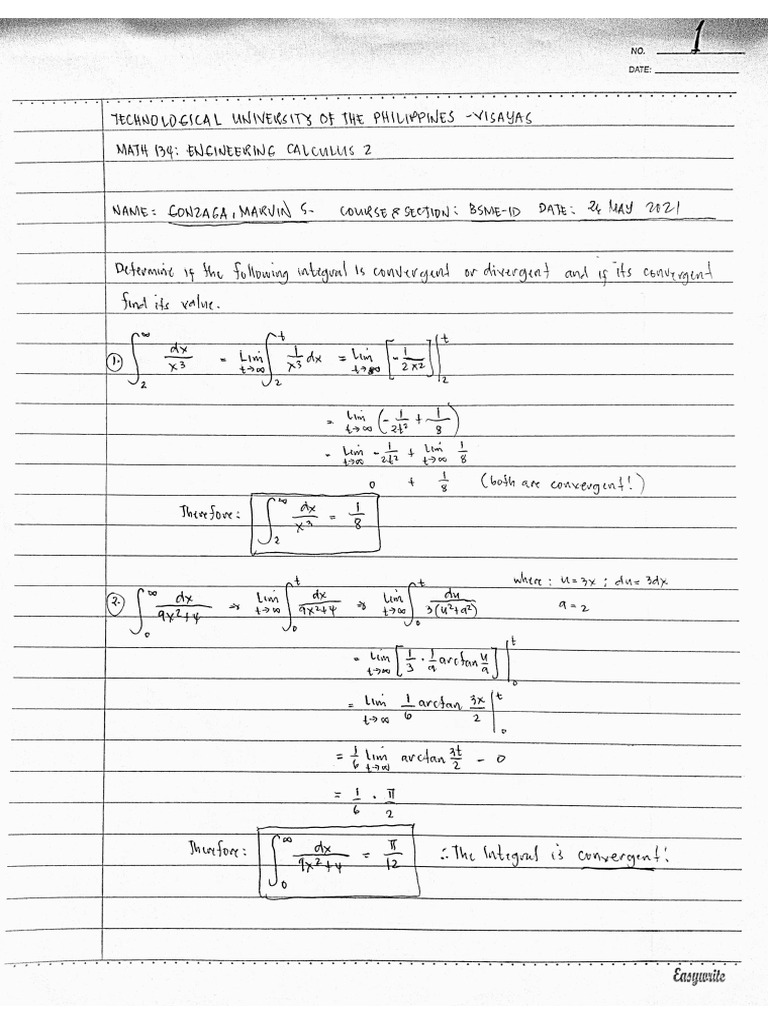 1
NO.
DATE:
TECHNOLOGICAL UNIVERSITY OF THE PHILIPPINES -VISAYAS
MATH 134: ENGINEERING CALCULUS 2
NAME: GONZAGA, MARVIN S. COURSE & SECTION: BSME-1D DATE: 24 MAY 2021
Determine if the following integral is convergent or divergent and if its convergent
find its value.
1. ∫_2^∞ dx/x³ = Lim t→∞ ∫_2^t 1/x³ dx = Lim t→∞ [-1/2x2]|_2^t
= Lim t→∞ (-1/2t² + 1/8)
= Lim t→∞ -1/2t² + Lim t→∞ 1/8
0 + 1/8 (both are convergent!)
Therefore: ∫_2^∞ dx/x³ = 1/8
2. ∫_0^∞ dx/9x²+4 ⇒ Lim t→∞ ∫_0^t dx/9x²+4 ⇒ Lim t→∞ ∫_0^t du/3(u²+a²) where: u=3x ; du=3dx
a=2
= Lim t→∞ [1/3 · 1/a arctan u/a]|_0^t
= Lim t→∞ 1/6 arctan 3x/2 |_0^t
= 1/6 Lim t→∞ arctan 3t/2 - 0
= 1/6 · π/2
Therefore: ∫_0^∞ dx/9x²+4 = π/12 ∴ The Integral is convergent!
Easywrite